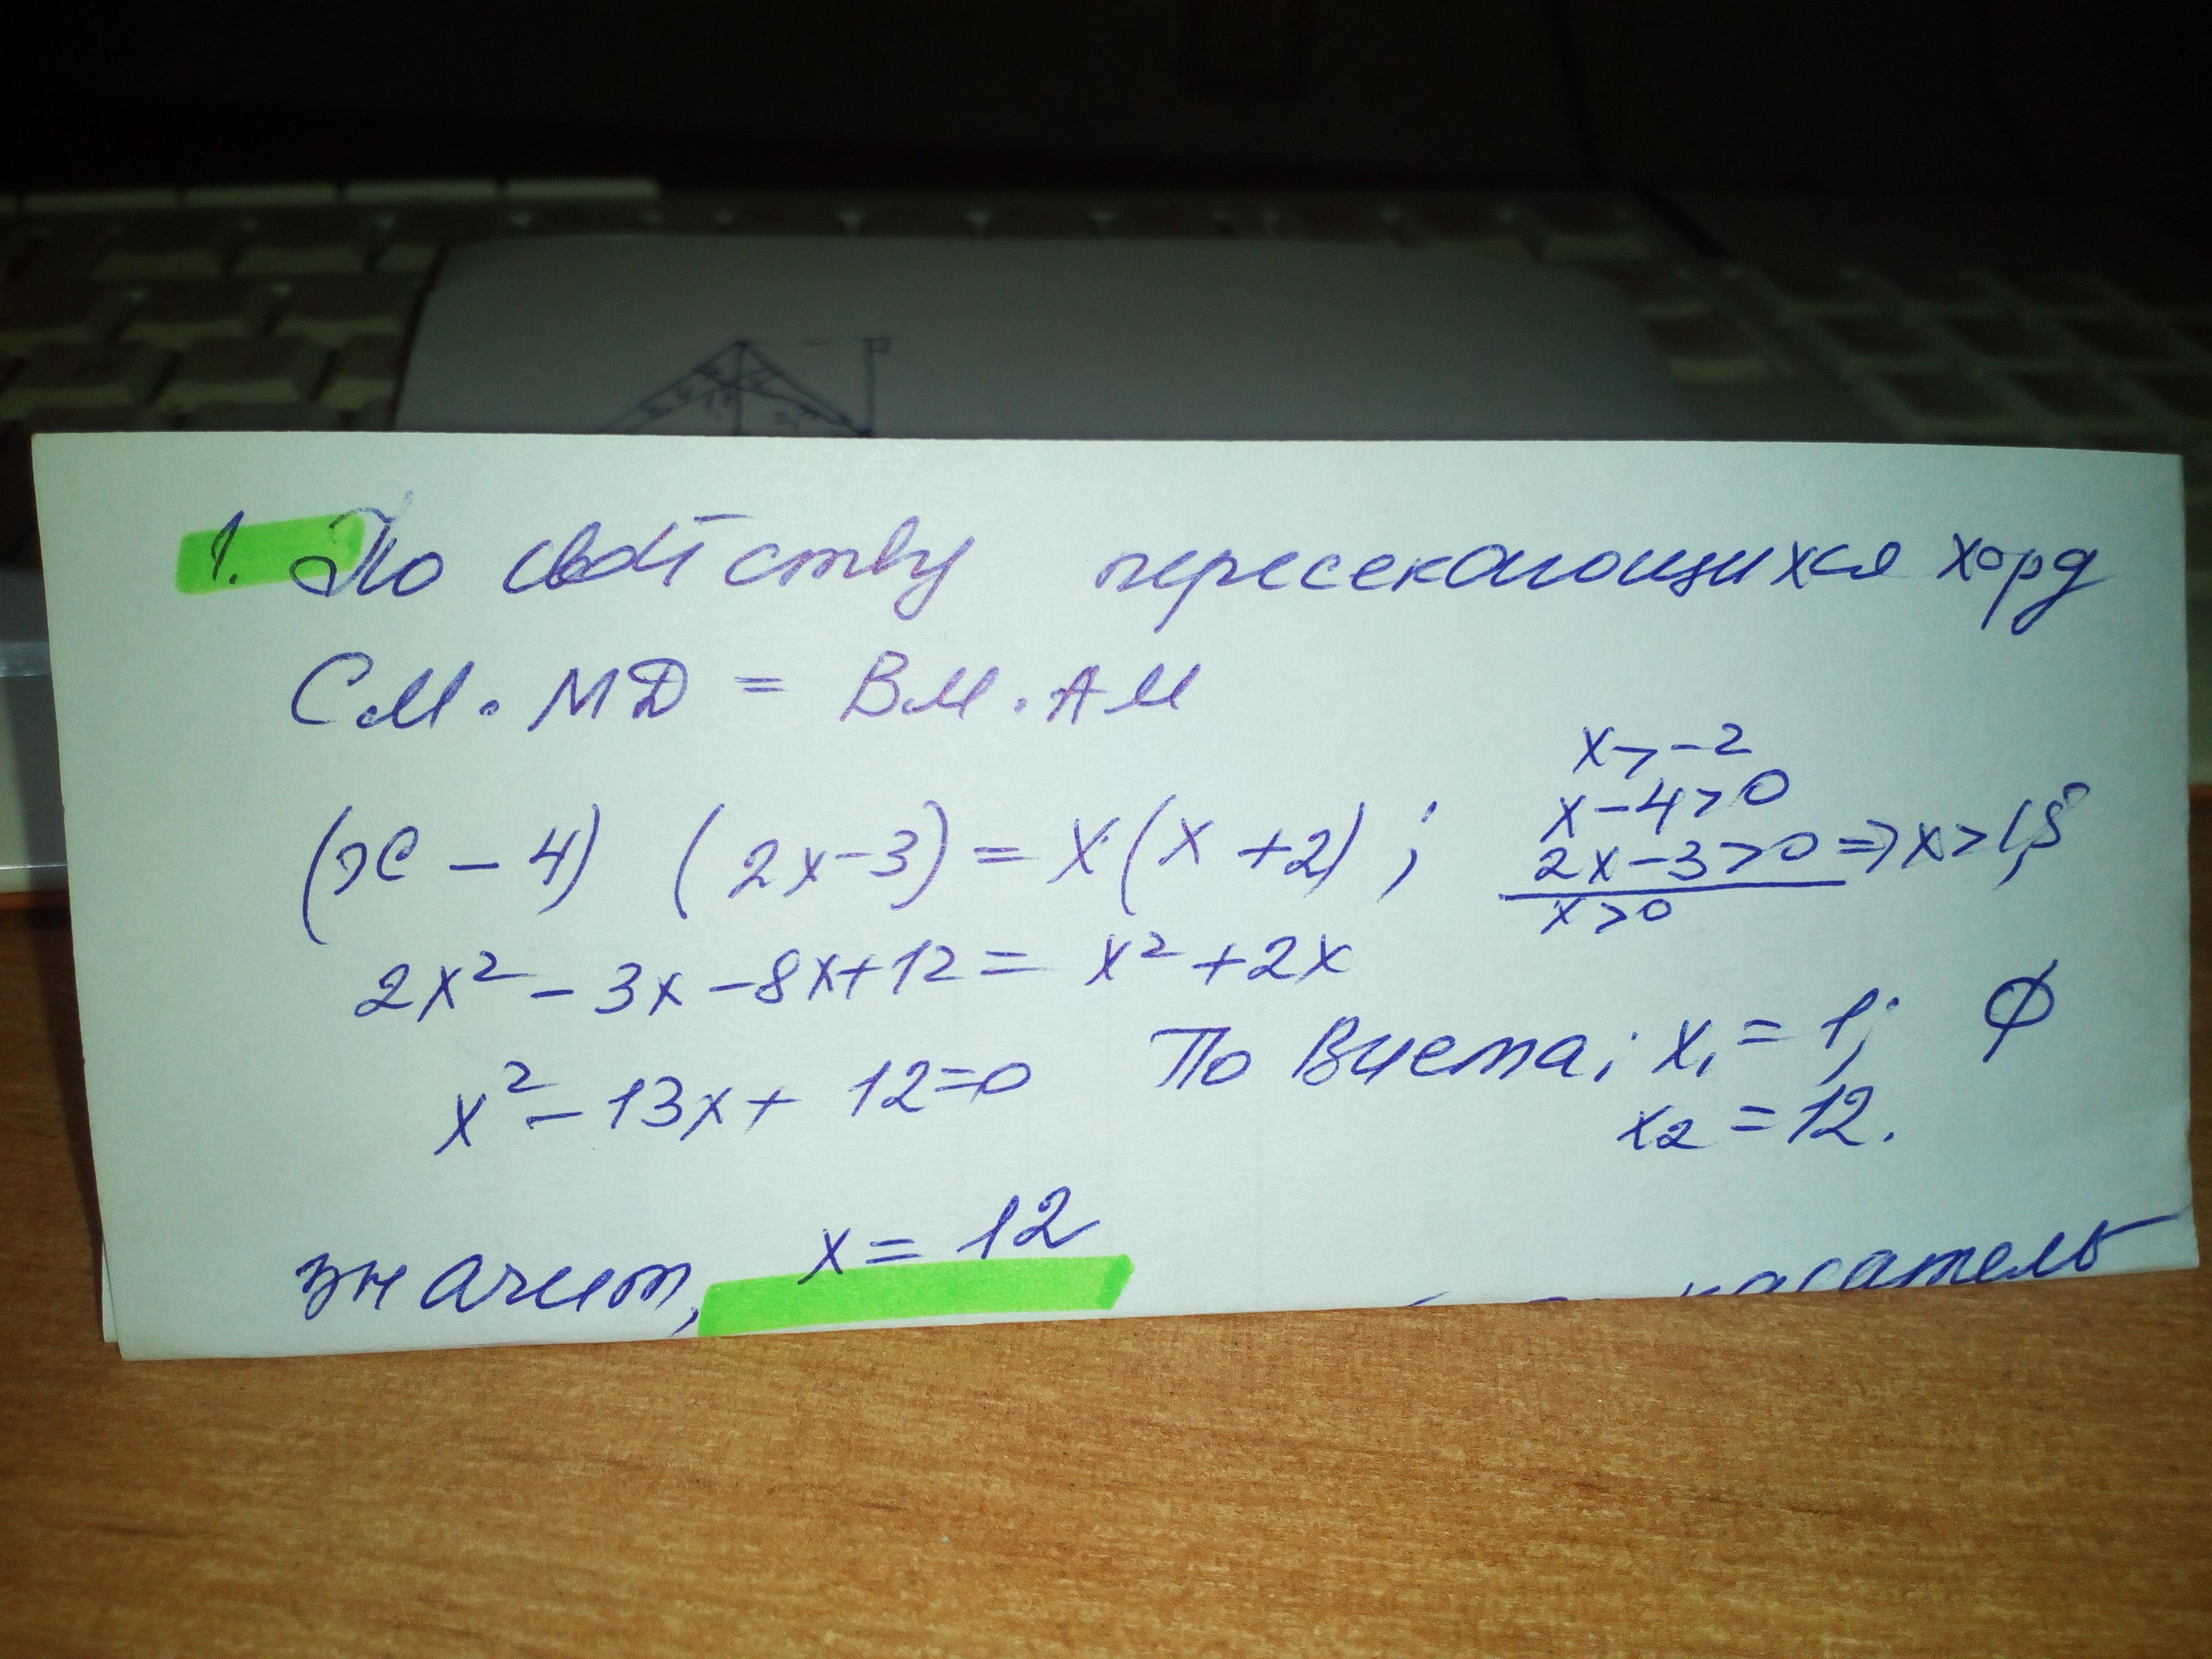 1. По свойству пересекающихся хорд
СМ · МД = ВМ · АМ
(x - 4) (2x - 3) = x(x + 2) ;
x > -2
x - 4 > 0
2x - 3 > 0 => x > 1,5
x > 0
2x² - 3x - 8x + 12 = x² + 2x
x² - 13x + 12 = 0 По Виета; x₁ = 1; ∅
x₂ = 12.
значит, x = 12
касатель